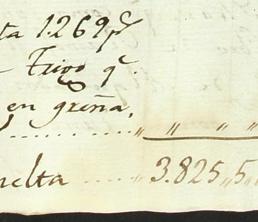 ta 1.269 p.^s
Trigo q.^e
en greña,
........ " " " "
uelta ..... " 3.825 " 5 "